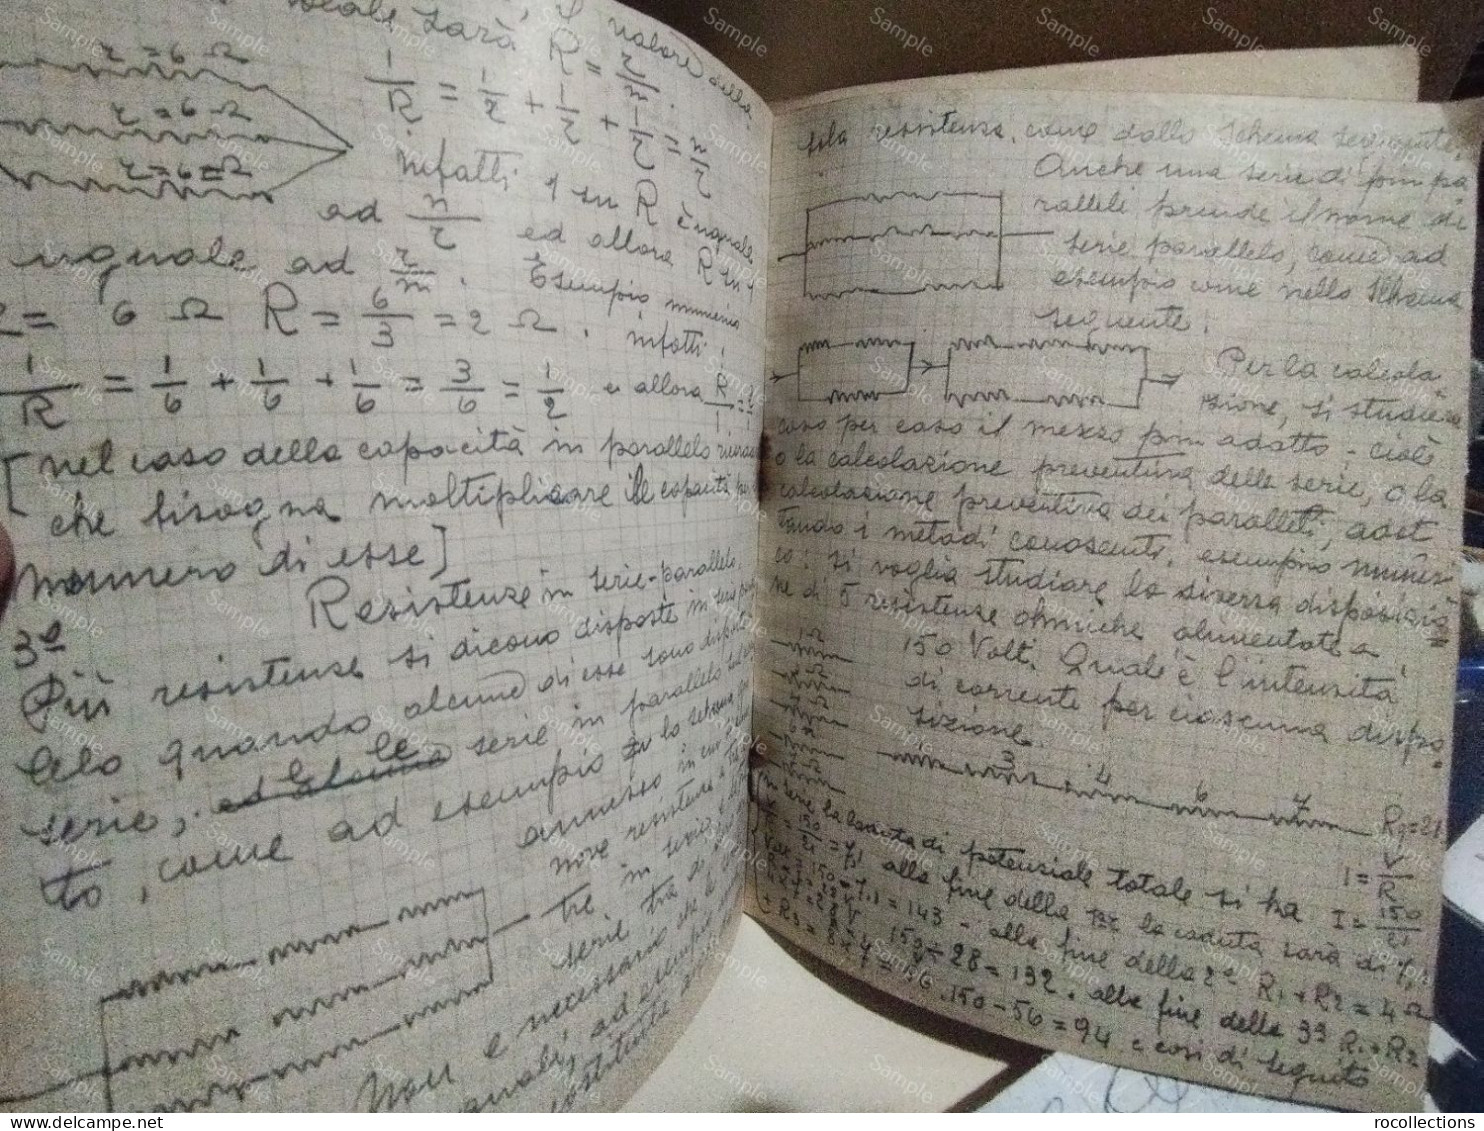 totale sarà R = r/n.
il valore della
r = 6 Ω
r = 6 Ω
r = 6 = Ω
1/R = 1/r + 1/r + 1/r = n/r
infatti 1 su R è uguale
ad n/r ed allora R su 1
uguale ad r/n. Esempio numerico
r = 6 Ω R = 6/3 = 2 Ω. infatti:
1/R = 1/6 + 1/6 + 1/6 = 3/6 = 1/2 e allora R/1 =
[nel caso della capacità in parallelo
che bisogna moltiplicare le capacità per
numero di esse]
Resistenze in serie-parallelo.
3º
Più resistenze si dicono disposte in serie paral
lelo quando alcune di esse sono disposte
serie, ed le serie in parallelo
to, come ad esempio lo schema
annesso in cui
nove resistenze
tre in serie
serie tra di
Non è necessario che le
uguali, ad esempio
costruita
sola resistenza, come dallo schema seguente.
Anche una serie di più pa
ralleli prende il nome di
serie parallelo, come ad
esempio come nello schema
seguente:
Per la calcola
zione, si studierà
caso per caso il mezzo più adatto - cioè
o la calcolazione preventiva delle serie, o la
calcolazione preventiva dei paralleli, adot
tando i metodi conosciuti, esempio numeri
co: si voglia studiare la diversa disposizio
ne di 5 resistenze ohmiche alimentate a
150 Volt. Quale è l'intensità
di corrente per ciascuna dispo
sizione.
1 Ω
3 Ω
4 Ω
6 Ω
7 Ω
1 3 4 6 7
Rg = 21
I = V/R
In serie la caduta di potenziale totale si ha I = 150/21
V/R = 150/21 = 7,1 alla fine della 1ª la caduta sarà di 7,1
Volt = 150 - 7,1 = 143 - alla fine della 2ª R1 + R2 = 4 Ω
4 x 7 = 28 V 150 - 28 = 132. alla fine della 3ª R1 + R2
+ R3 = 8 x 7 = 56. 150 - 56 = 94 e così di seguito
Sample
rocollections